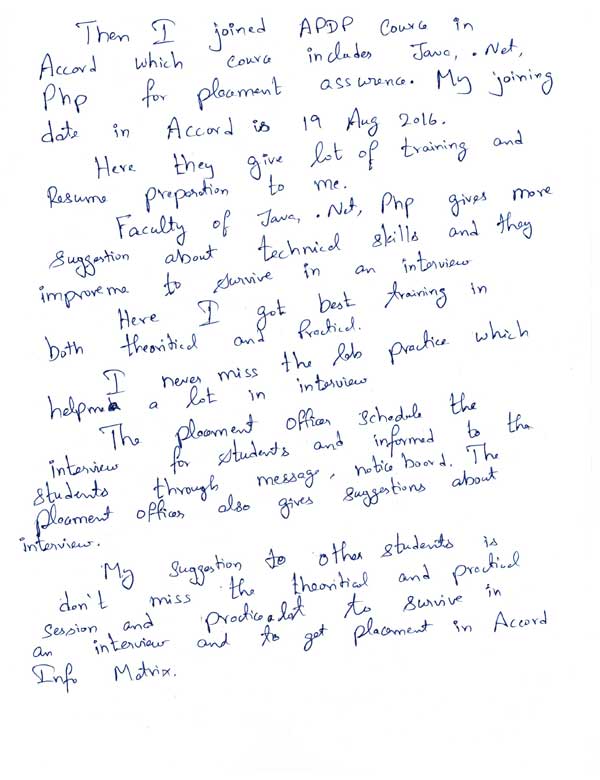 Then I joined APDP Course in
Accord which course includes Java, .Net,
Php for placement assurence. My joining
date in Accord is 19 Aug 2016.
Here they give lot of training and
Resume preparation to me.
Faculty of Java, .Net, Php gives more
suggestion about technical skills and they
improve me to survive in an interview
Here I got best training in
both theoritical and Practical.
I never miss the lab practice which
help me a lot in interview
The placement officer schedule the
interview for students and informed to the
students through message, notice board. The
placment officer also gives suggestions about
interview.
My suggestion to other students is
don't miss the theoritical and practical
session and practice a lot to survive in
an interview and to get placement in Accord
Info Matrix.